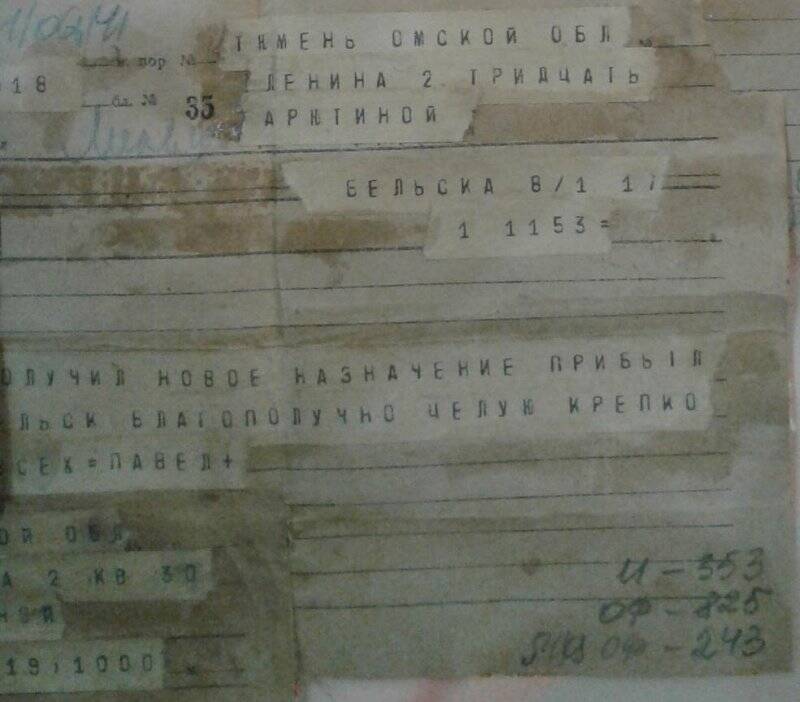 1/06/41
пор №
ТЮМЕНЬ ОМСКОЙ ОБЛ
18
ЛЕНИНА 2 ТРИДЧАТЬ
бл. № 35
АРЮТИНОЙ
БЕЛЬСКА 8/1 17
1 1153=
ОЛУЧИЛ НОВОЕ НАЗНАЧЕНИЕ ПРИБЫЛ
ЛЬСК БЛАГОПОЛУЧНО ЧЕЛУЮ КРЕПКО
СЕХ=ПАВЕЛ+
ОЙ ОБЛ
А 2 КВ 30
НОЙ
19,1000
И-553
ОФ-825
ОФ-243